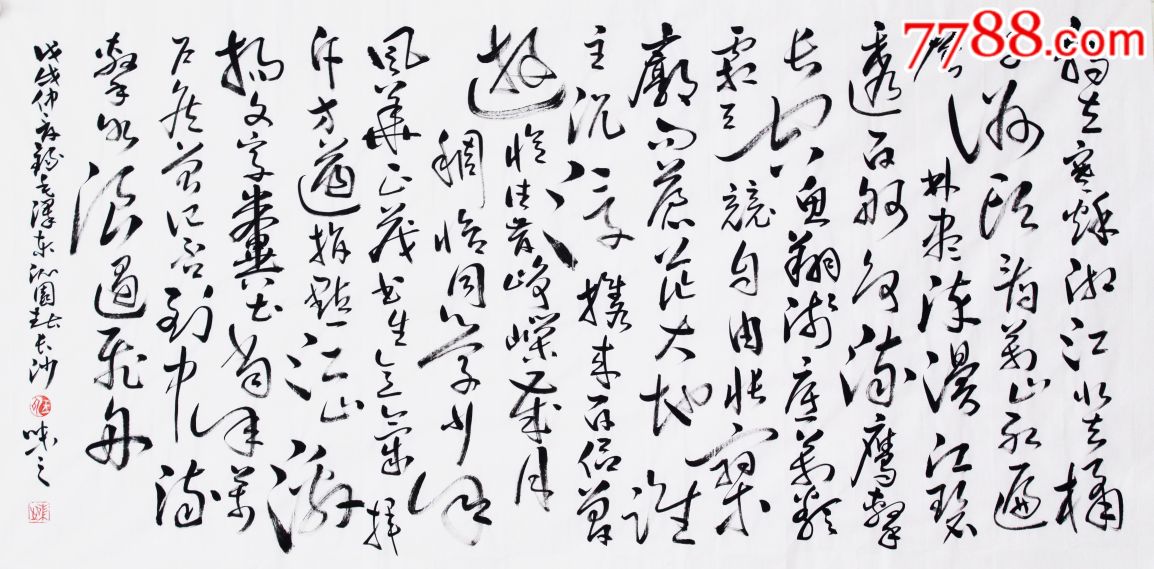 7788.com
独立寒秋湘江北去橘
子洲头看万山红遍
层林尽染漫江碧
透百舸争流鹰击
长空鱼翔浅底万类
霜天竞自由怅寥
廓问苍茫大地谁
主沉浮携来百侣曾
游忆往昔峥嵘岁月
稠恰同学少年
风华正茂书生意气挥
斥方遒指点江山激
扬文字粪土当年万
户侯曾记否到中流
击水浪遏飞舟
戊戌仲夏录毛泽东沁园春长沙